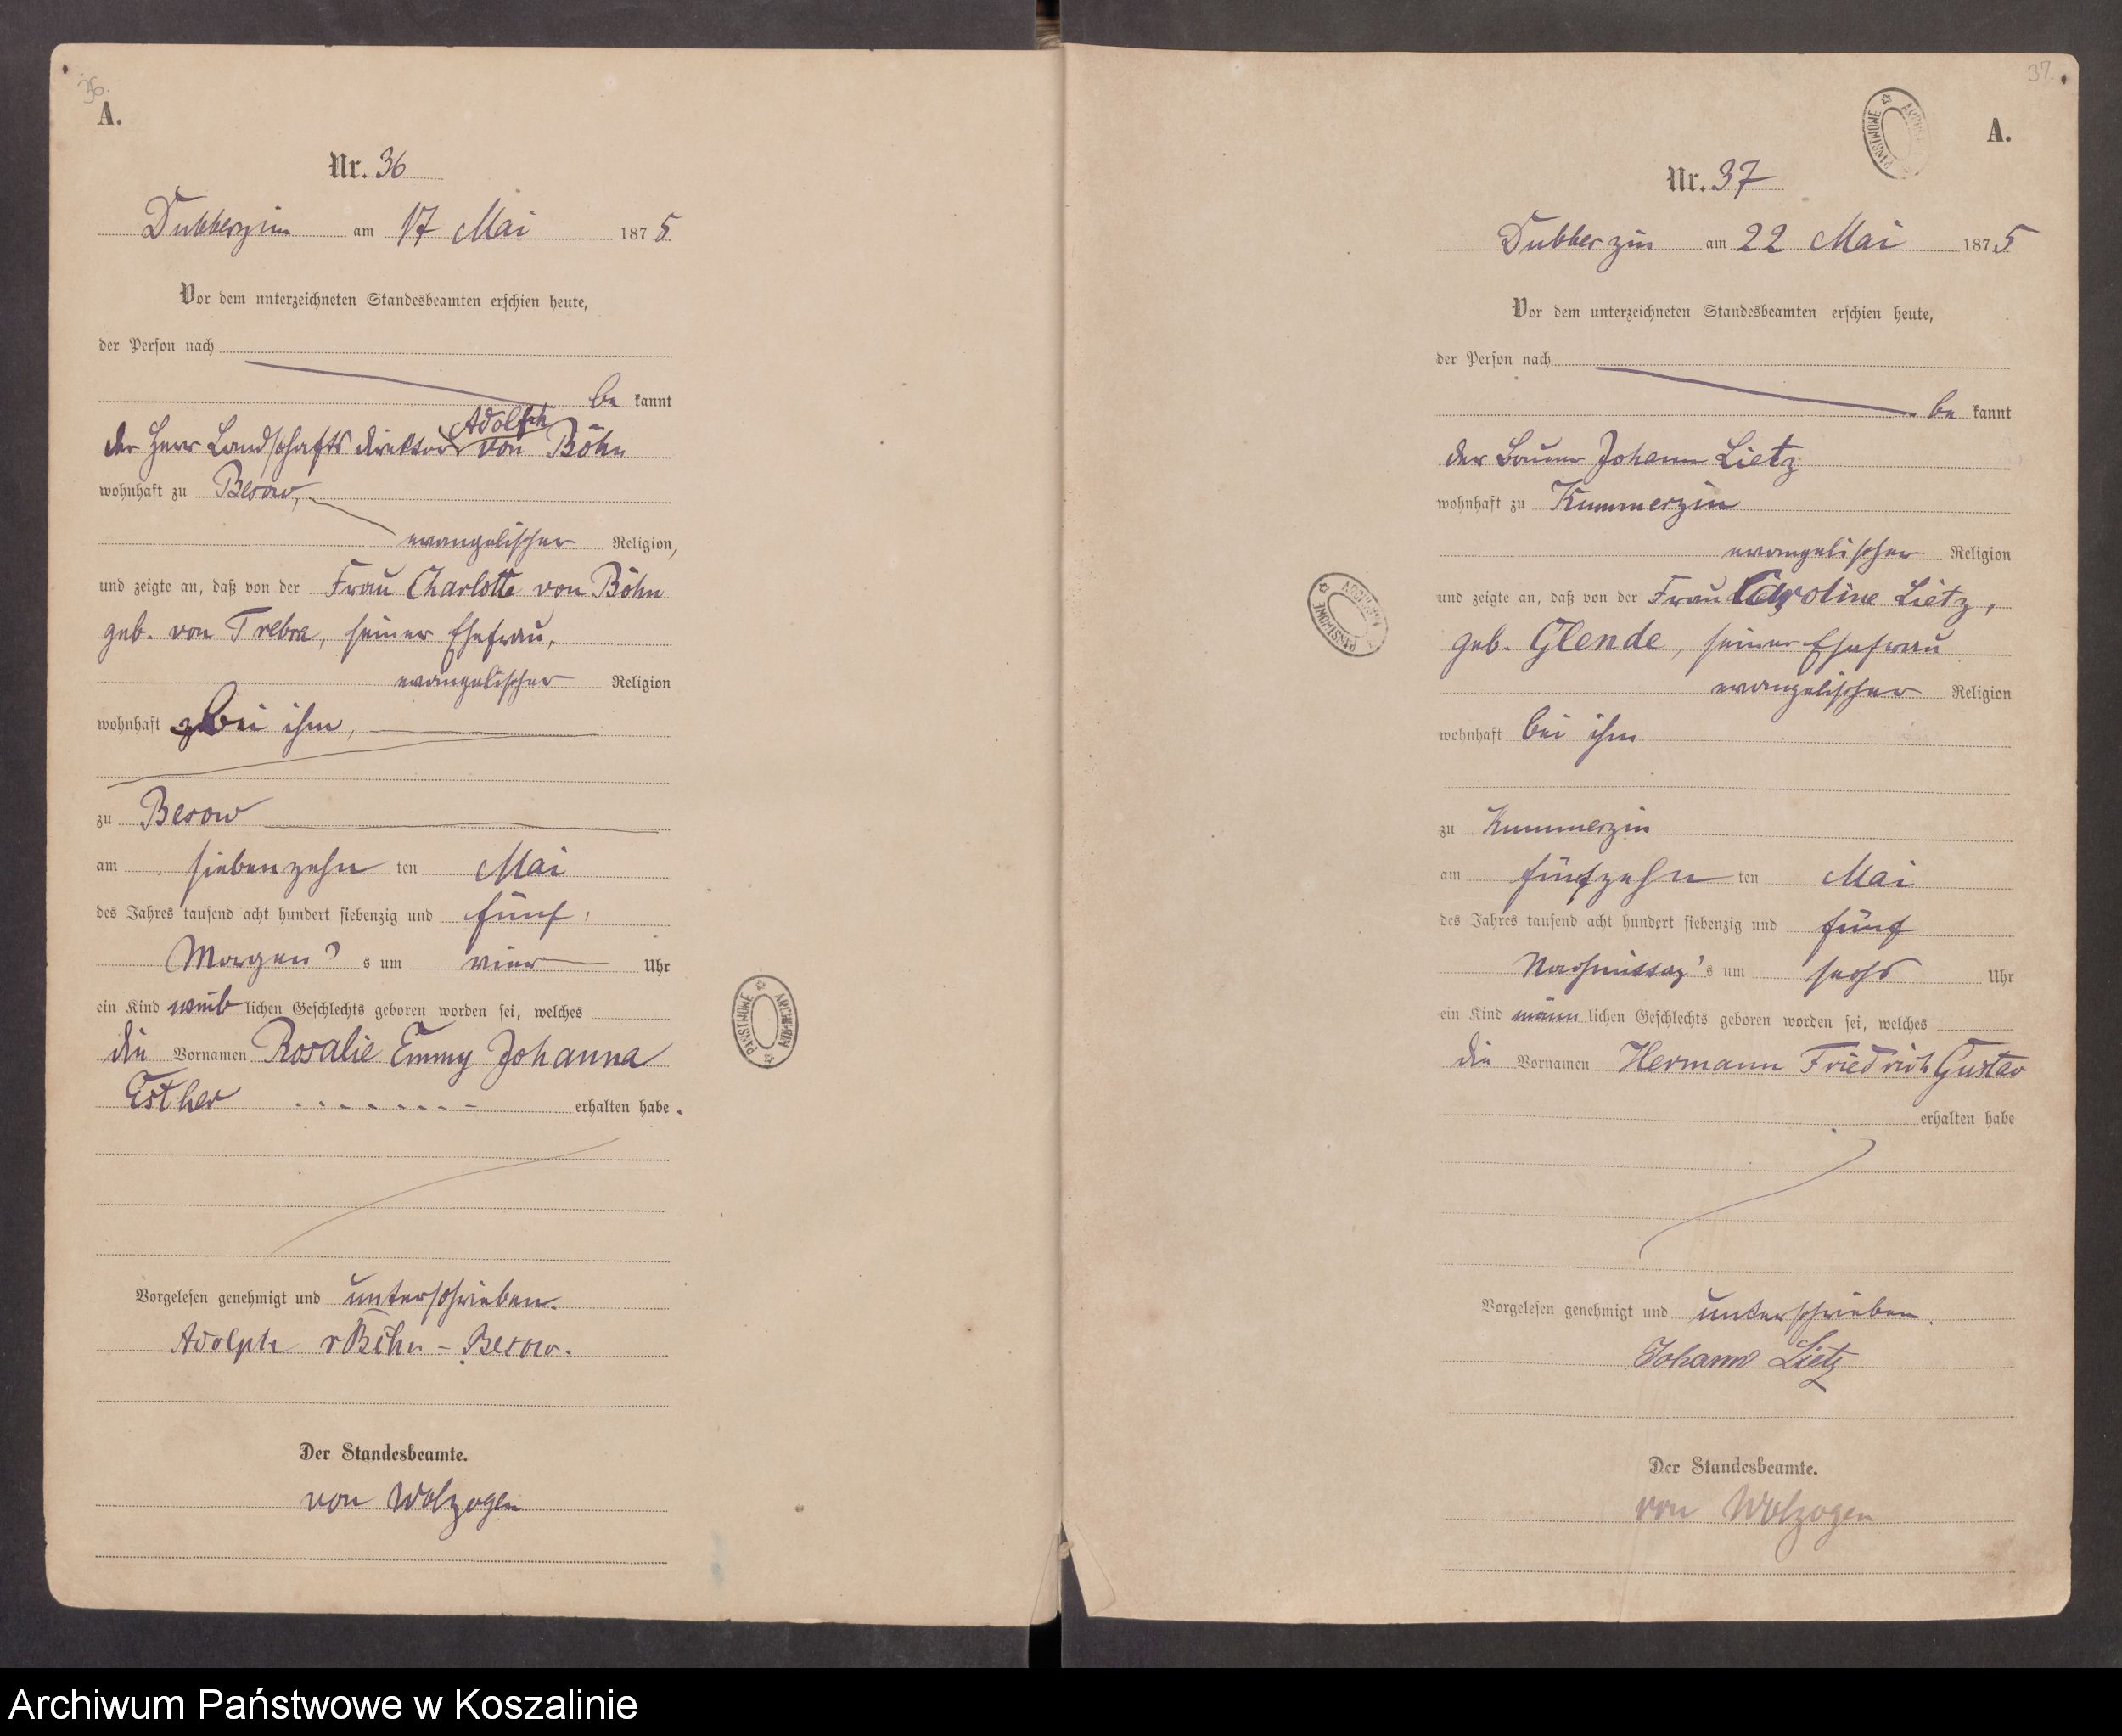 36.
A.
Nr. 36
Dubberzin am 17 Mai 1875
Vor dem unterzeichneten Standesbeamten erschien heute,
der Person nach
be kannt
Adolph
der Herr Landschafts direktor von Böhn
wohnhaft zu Besow,
evangelischer Religion,
und zeigte an, daß von der Frau Charlotte von Böhn
geb. von Trebra, seiner Ehefrau,
evangelischer Religion
wohnhaft bei ihm,
zu Besow
am siebenzehn ten Mai
des Jahres tausend acht hundert siebenzig und fünf,
Morgen s um vier Uhr
ein Kind weib lichen Geschlechts geboren worden sei, welches
die Vornamen Rosalie Emmy Johanna
Esther erhalten habe.
Vorgelesen genehmigt und unterschrieben.
Adolph v Böhn - Besow.
Der Standesbeamte.
von Wolzogen
ARCHIWUM PAŃSTWOWE
37.
A.
Nr. 37
Dubberzin am 22 Mai 1875
Vor dem unterzeichneten Standesbeamten erschien heute,
der Person nach
be kannt
der Bauer Johann Lietz
wohnhaft zu Kummerzin
evangelischer Religion
und zeigte an, daß von der Frau Caroline Lietz,
geb. Glende, seiner Ehefrau
evangelischer Religion
wohnhaft bei ihm
zu Kummerzin
am fünfzehn ten Mai
des Jahres tausend acht hundert siebenzig und fünf
Nachmittag's um sechs Uhr
ein Kind männ lichen Geschlechts geboren worden sei, welches
die Vornamen Hermann Friedrich Gustav
erhalten habe
Vorgelesen genehmigt und unterschrieben.
Johann Lietz
Der Standesbeamte.
von Wolzogen
ARCHIWUM PAŃSTWOWE
ARCHIWUM PAŃSTWOWE
Archiwum Państwowe w Koszalinie